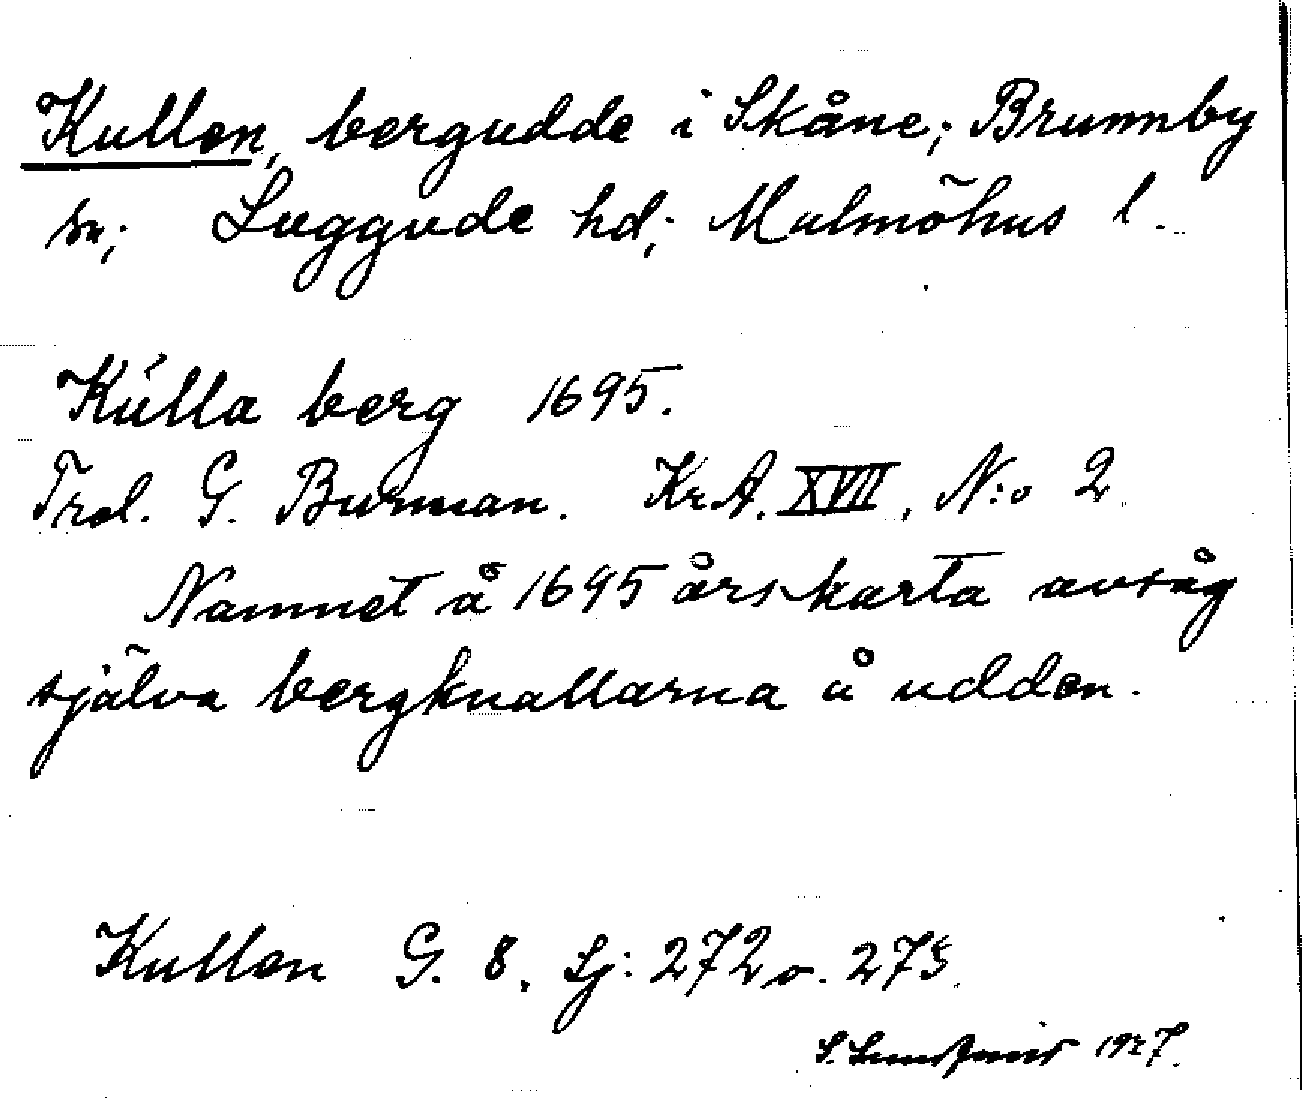 Kullen, bergudde i Skåne; Brunnby
sn; Luggude hd; Malmöhus l.
Kúlla berg 1695.
Trol. G. Burman. Kr.A. XVII, N:o 2
Namnet å 1695 års karta avsåg
själva bergknallarna å udden.
Kullen G. 8. Sj: 272 o. 273.
S. 1927.